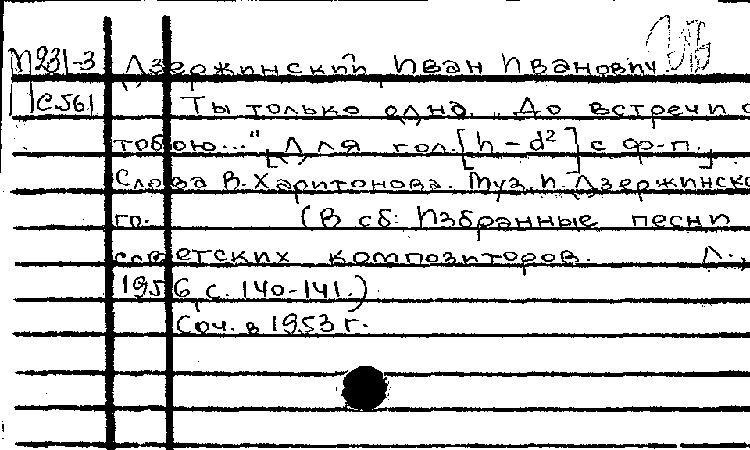 М231-3 Дзержинский, Иван Иванович
С561 Ты только одна. „До встречи с
тобою..." [Для гол. [h-d²] с ф-п.]
Слова В. Харитонова. Муз. И. Дзержинско
го. (В сб: Избранные песни
советских композиторов. Л.,
1956, с. 140-141.)
Соч. в 1953 г.